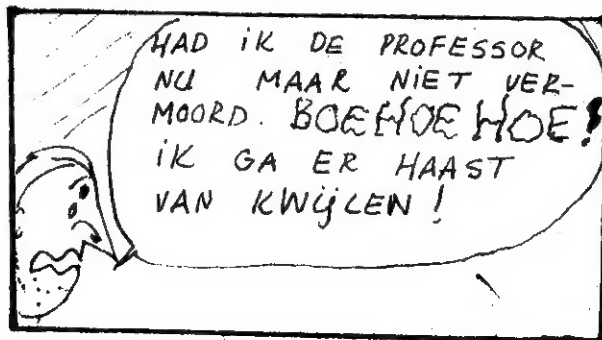 HAD iK DE PROFESSOR
NU MAAR NiET VER-
MOORD. BOEHOEHOE!
iK GA ER HAAST
VAN KWijLEN!